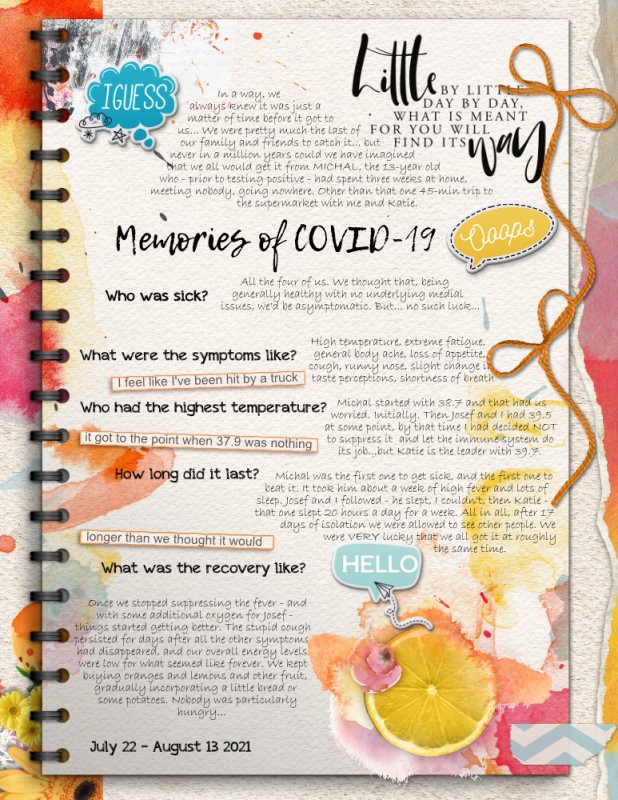 IGUESS
Little
BY LITTLE
DAY BY DAY,
WHAT IS MEANT
FOR YOU WILL
FIND ITS
way
In a way, we
always knew it was just a
matter of time before it got to
us... We were pretty much the last of
our family and friends to catch it... but
never in a million years could we have imagined
that we all would get it from MICHAL, the 13-year old
who - prior to testing positive - had spent three weeks at home,
meeting nobody, going nowhere. Other than that one 45-min trip to
the supermarket with me and Katie.
Memories of COVID-19
Ooops
Who was sick?
All the four of us. We thought that, being
generally healthy with no underlying medial
issues, we'd be asymptomatic. But... no such luck...
What were the symptoms like?
High temperature, extreme fatigue,
general body ache, loss of appetite,
cough, runny nose, slight change in
taste perceptions, shortness of breath
I feel like I've been hit by a truck
Who had the highest temperature?
Michal started with 38.7 and that had us
worried. Initially. Then Josef and I had 39.5
at some point, by that time I had decided NOT
to suppress it and let the immune system do
its job...but Katie is the leader with 39.7.
it got to the point when 37.9 was nothing
How long did it last?
Michal was the first one to get sick, and the first one to
beat it. It took him about a week of high fever and lots of
sleep. Josef and I followed - he slept, I couldn't, then Katie -
that one slept 20 hours a day for a week. All in all, after 17
days of isolation we were allowed to see other people. We
were VERY lucky that we all got it at roughly
the same time.
longer than we thought it would
What was the recovery like?
HELLO
Once we stopped suppressing the fever - and
with some additional oxygen for Josef -
things started getting better. The stupid cough
persisted for days after all the other symptoms
had disappeared, and our overall energy levels
were low for what seemed like forever. We kept
buying oranges and lemons and other fruit,
gradually incorporating a little bread or
some potatoes. Nobody was particularly
hungry...
July 22 - August 13 2021